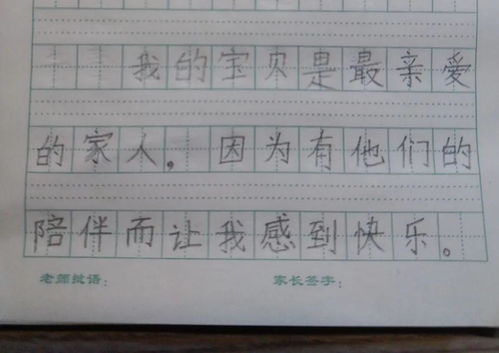 我的宝贝是最亲爱
的家人。因为有他们的
陪伴而让我感到快乐。
老师批语： 家长签字：